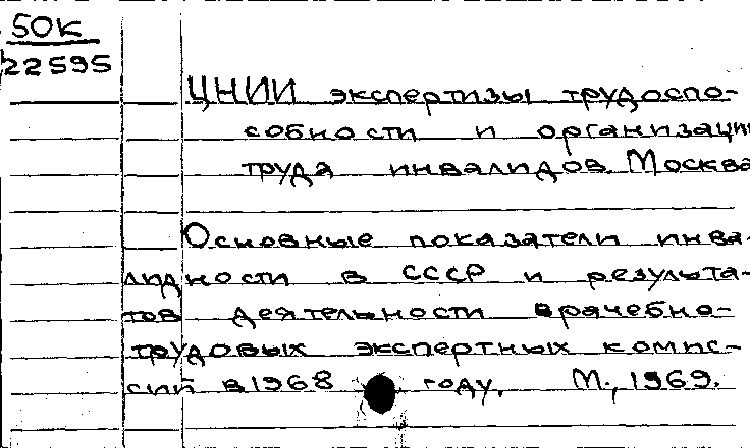 50К
22595
ЦНИИ экспертизы трудоспо-
собности и организации
труда инвалидов. Москва
Основные показатели инва-
лидности в СССР и результа-
тов деятельности врачебно-
трудовых экспертных комис-
сий в 1968 году. М., 1969.